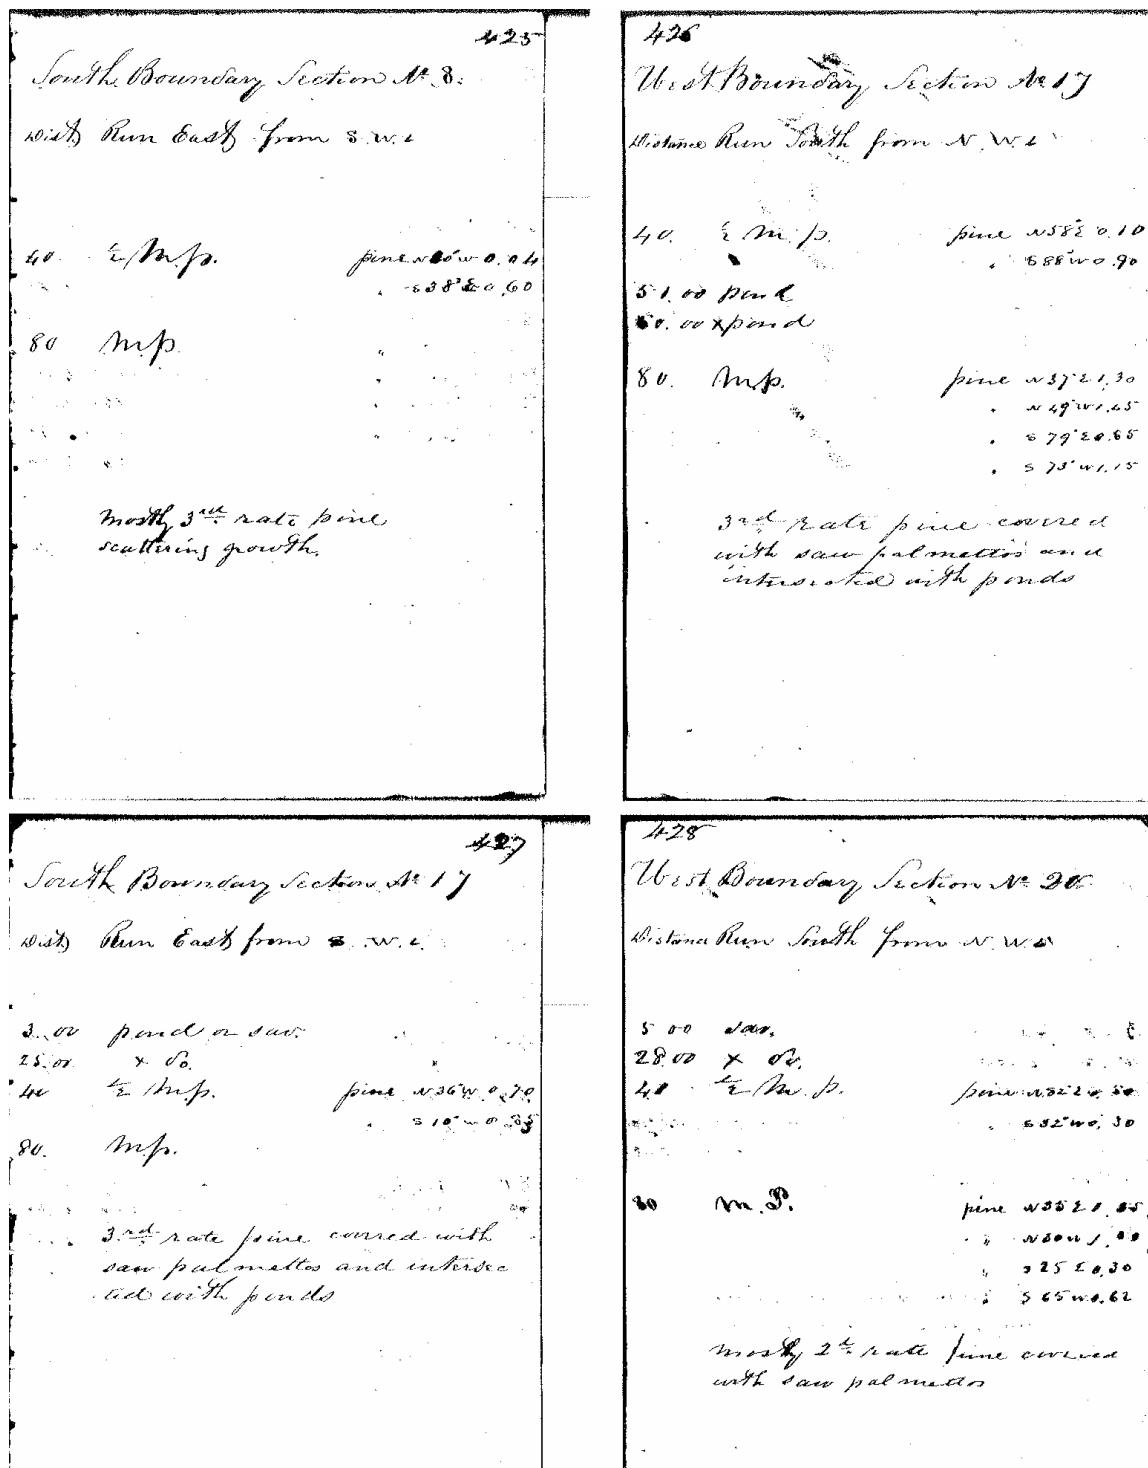 425
South Boundary Section No 8.
Dist) Run East from S. W. c
40. ½ M.p. pine N80°W 0.04
" S38°E 0.60
80 M.p. "
"
"
"
mostly 3rd rate pine
scattering growth.
426
West Boundary Section No 17
Distance Run South from N. W. c
40. ½ M.p. pine N58°E 0.10
" S88°W 0.90
51.00 pond
60.00 x pond
80. M.p. pine N37°E 1.30
" N49°W 1.45
" S79°E 0.65
" S73°W 1.15
3rd rate pine covered
with saw palmettos and
intersected with ponds
427
South Boundary Section No 17
Dist) Run East from S. W. c.
3.00 pond or sav.
25.00 x do.
40 ½ M.p. pine N36°W 0.70
" S10°W 0.35
80. M.p.
3rd rate pine covered with
saw palmettos and intersec
ted with ponds
428
West Boundary Section No 20
Distance Run South from N. W. c
5 00 sav.
28.00 x do.
40 ½ M.p. pine
" S32°W 0.30
80 M.P. pine N35E
" N30W
" S25E 0.30
" S65W 0.62
mostly 2d rate pine covered
with saw palmettos